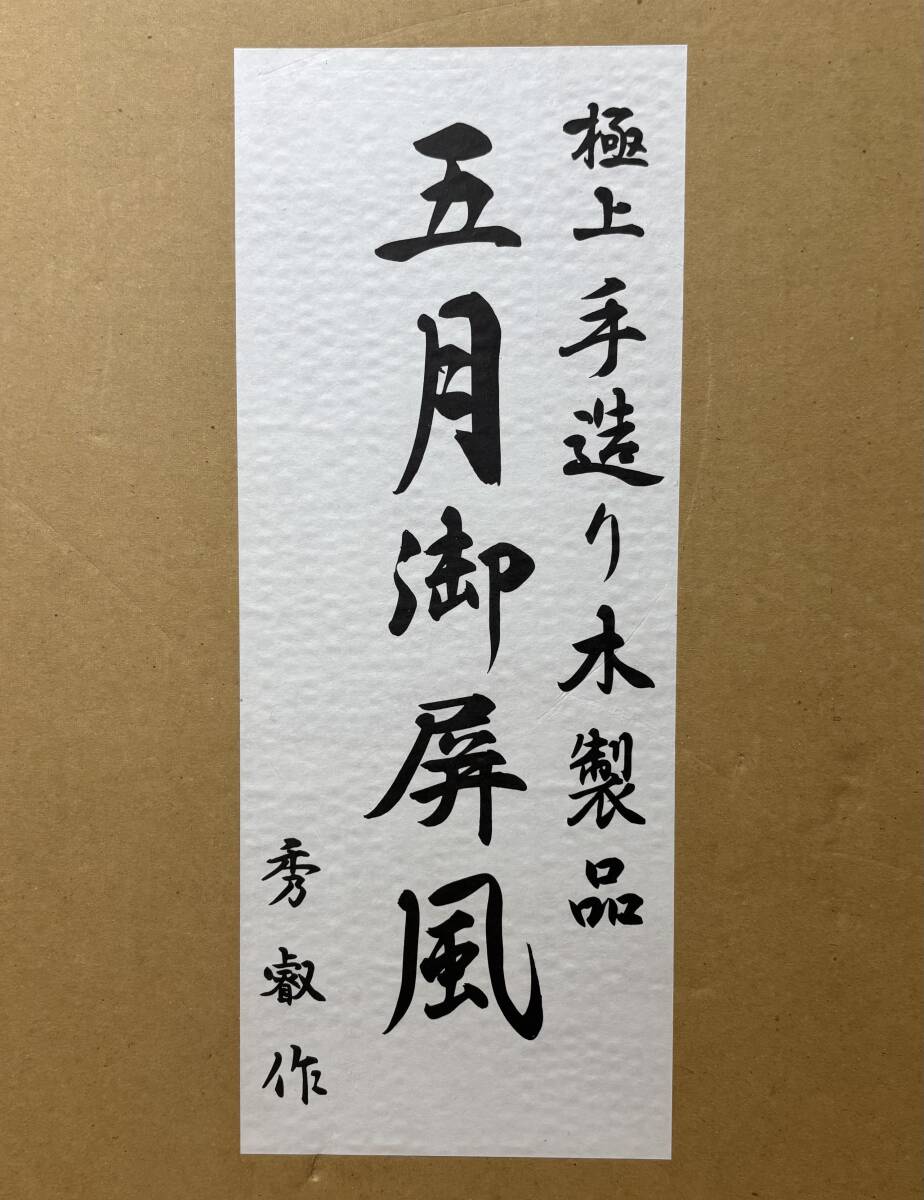 極上手造り木製品
五月御屏風
秀叡作